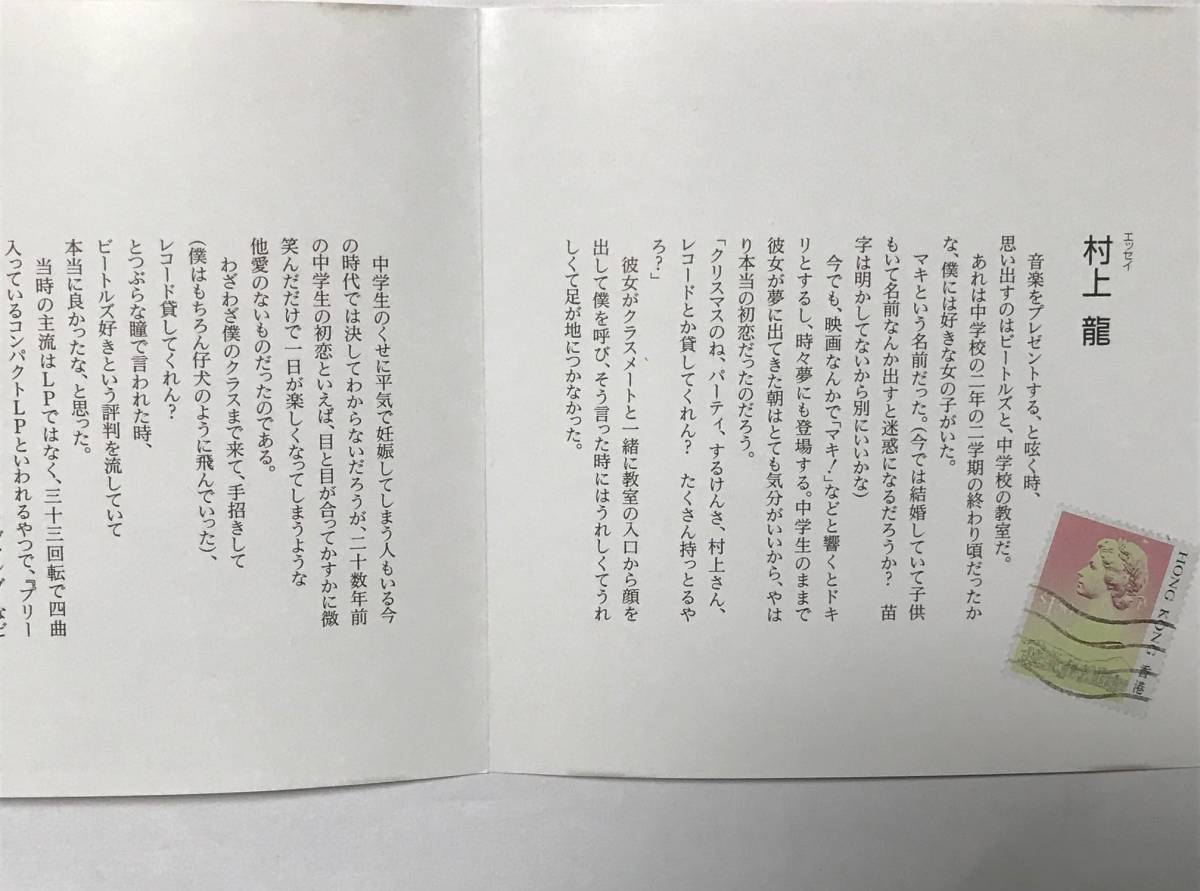 エッセイ
村上 龍
音楽をプレゼントする、と呟く時、
思い出すのはビートルズと、中学校の教室だ。
あれは中学校の二年の二学期の終わり頃だったか
な、僕には好きな女の子がいた。
マキという名前だった。(今では結婚していて子供
もいて名前なんか出すと迷惑になるだろうか? 苗
字は明かしてないから別にいいかな)
今でも、映画なんかで「マキ!」などと響くとドキ
リとするし、時々夢にも登場する。中学生のままで
彼女が夢に出てきた朝はとても気分がいいから、やは
り本当の初恋だったのだろう。
「クリスマスのね、パーティ、するけんさ、村上さん、
レコードとか貸してくれん? たくさん持っとるや
ろ?」
彼女がクラスメートと一緒に教室の入口から顔を
出して僕を呼び、そう言った時にはうれしくてうれ
しくて足が地につかなかった。
中学生のくせに平気で妊娠してしまう人もいる今
の時代では決してわからないだろうが、二十数年前
の中学生の初恋といえば、目と目が合ってかすかに微
笑んだだけで一日が楽しくなってしまうような
他愛のないものだったのである。
わざわざ僕のクラスまで来て、手招きして
(僕はもちろん仔犬のように飛んでいった)、
レコード貸してくれん?
とつぶらな瞳で言われた時、
ビートルズ好きという評判を流していて
本当に良かったな、と思った。
当時の主流はLPではなく、三十三回転で四曲
入っているコンパクトLPといわれるやつで、『プリー
HONG KONG 香港